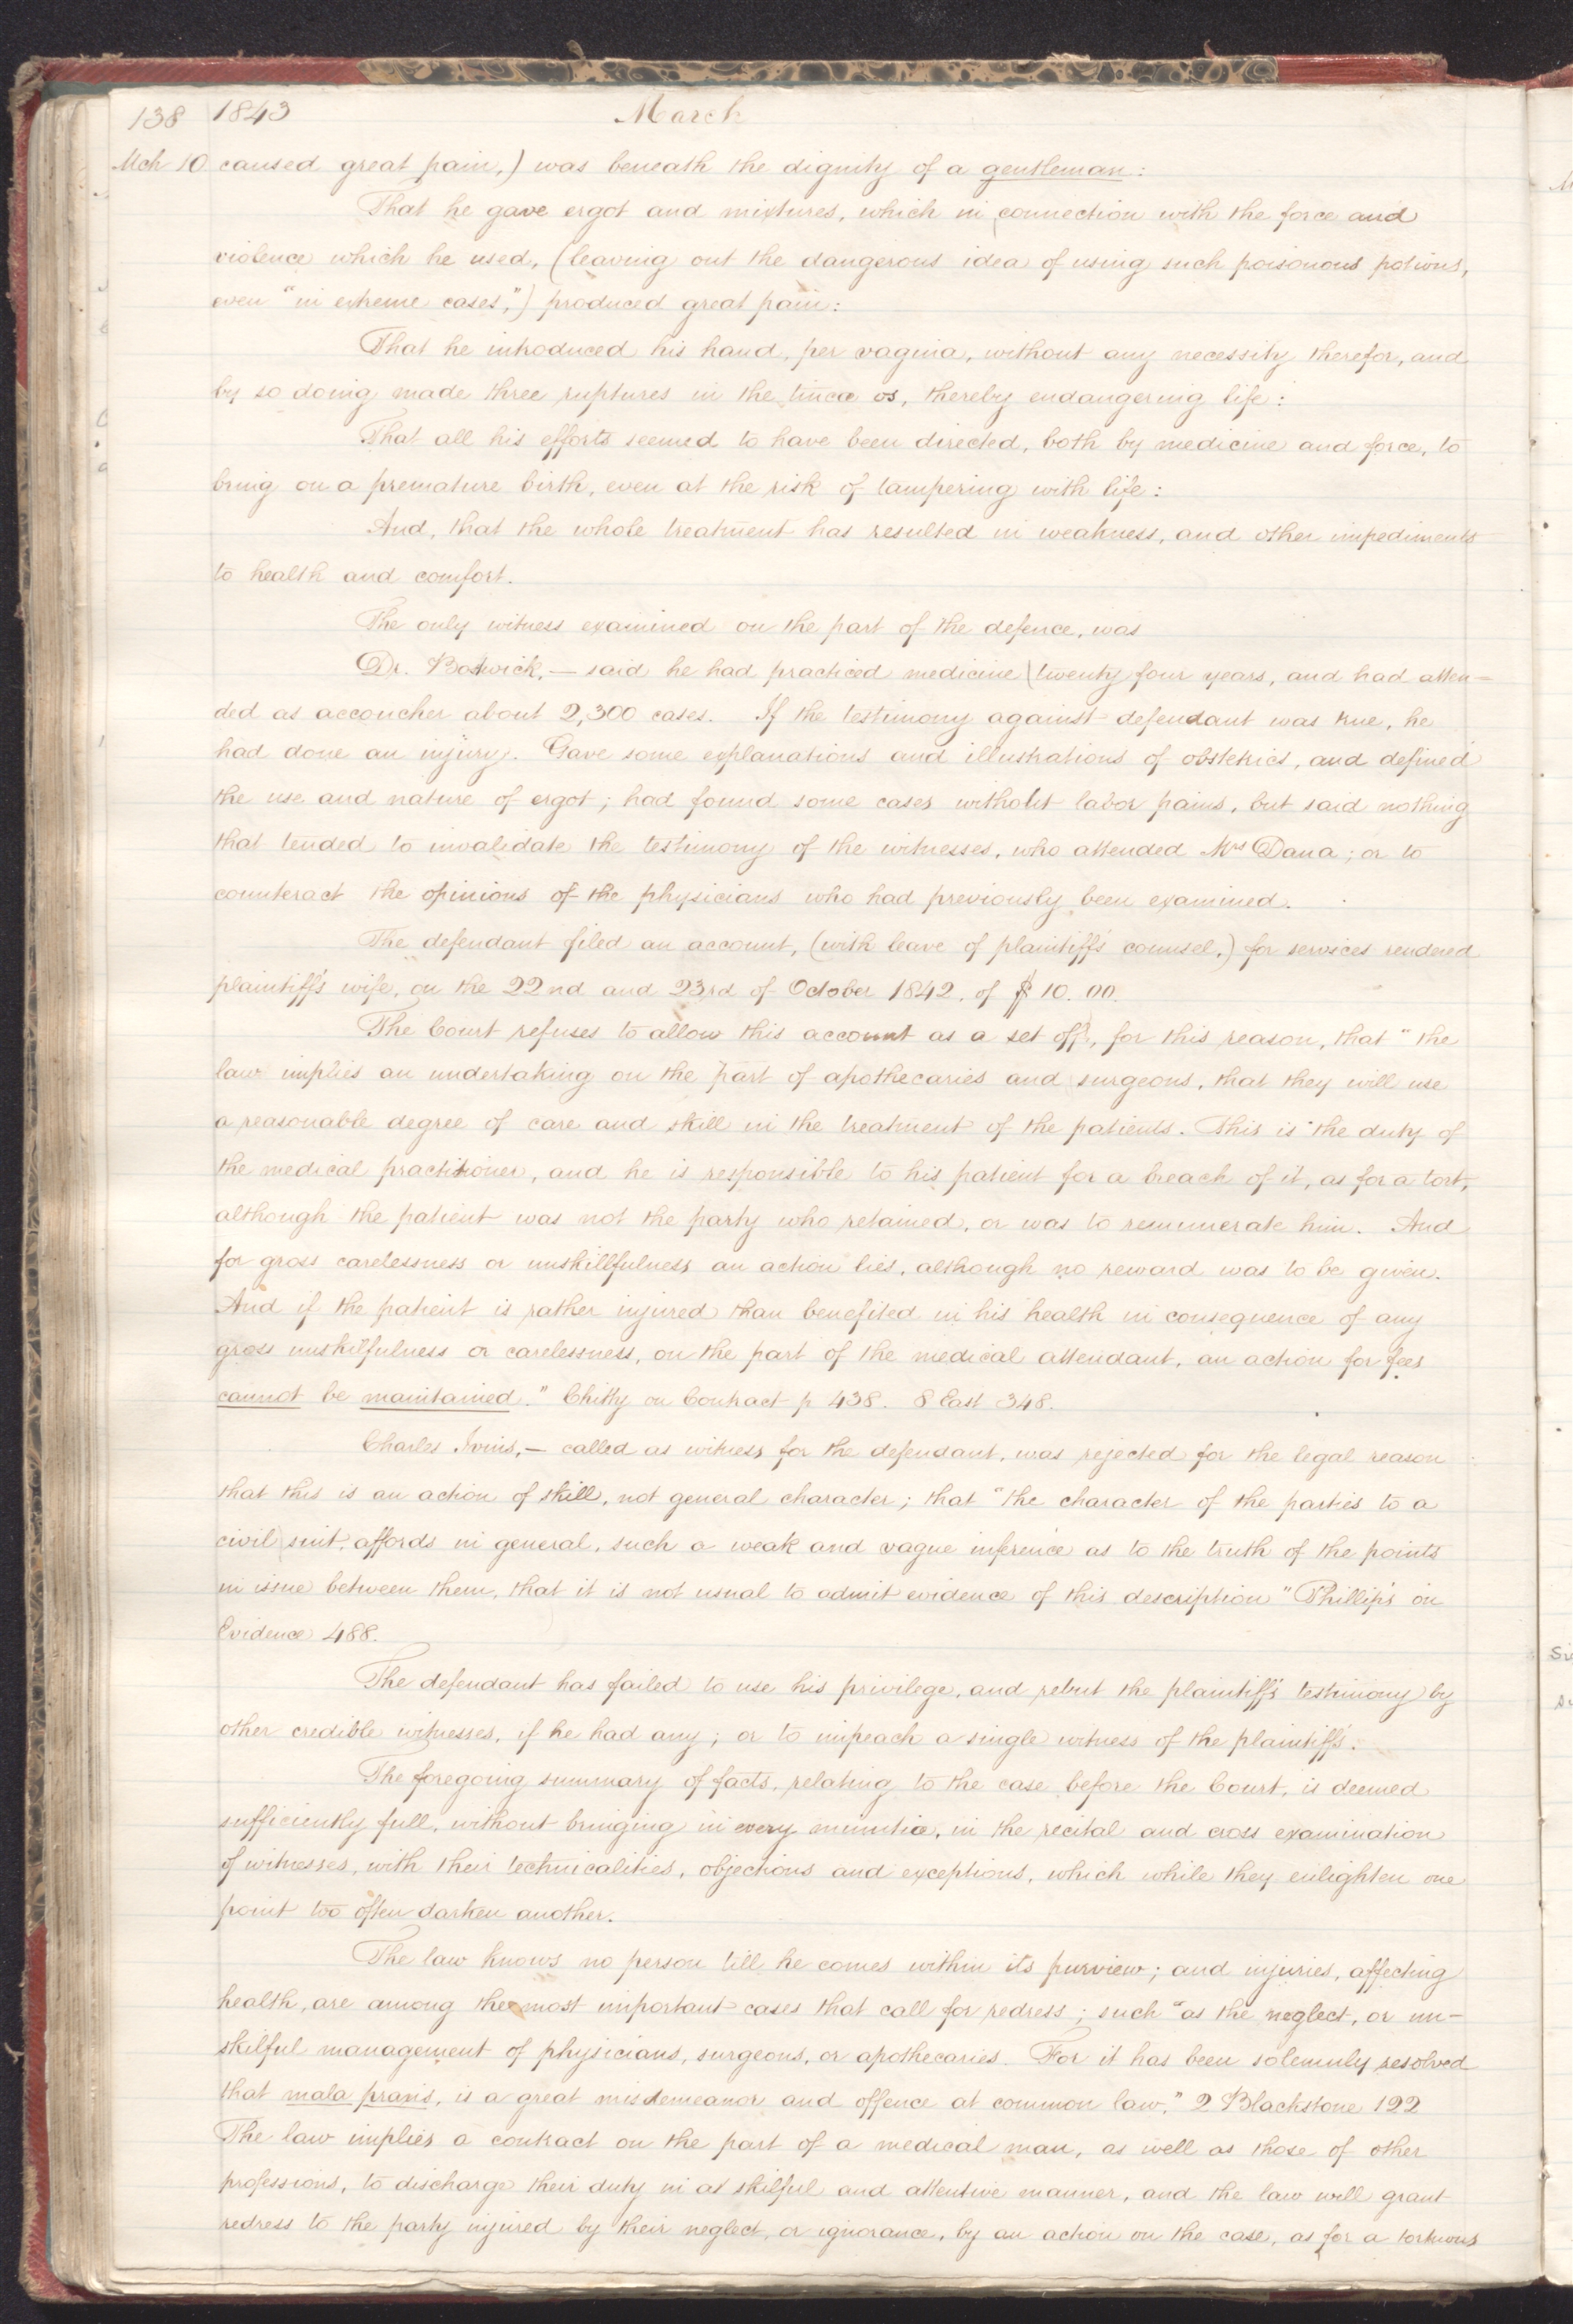 138 1843 March
Mch 10 caused great pain,) was beneath the dignity of a gentleman:
That he gave ergot and mixtures, which in connection with the force and
violence which he used, (leaving out the dangerous idea of using such poisonous potions,
even "in extreme cases,") produced great pain:
That he introduced his hand, per vagina, without any necessity therefor, and
by so doing made three ruptures in the tincæ os, thereby endangering life:
That all his efforts seemed to have been directed, both by medicine and force, to
bring on a premature birth, even at the risk of tampering with life:
And, that the whole treatment has resulted in weakness, and other impediments
to health and comfort.
The only witness examined on the part of the defence, was
Dr. Bostwick,— said he had practiced medicine twenty four years, and had atten=
ded as accoucher about 2,300 cases. If the testimony against defendant was true, he
had done an injury. Gave some explanations and illustrations of obstetrics, and defined
the use and nature of ergot; had found some cases without labor pains, but said nothing
that tended to invalidate the testimony of the witnesses, who attended Mrs Dana; or to
counteract the opinions of the physicians who had previously been examined.
The defendant filed an account, (with leave of plaintiff's counsel,) for services rendered
plaintiff's wife, on the 22nd and 23rd of October 1842, of $10.00.
The Court refuses to allow this account as a set off, for this reason, that "the
law implies an undertaking on the part of apothecaries and surgeons, that they will use
a reasonable degree of care and skill in the treatment of the patients. This is the duty of
the medical practitioner, and he is responsible to his patient for a breach of it, as for a tort,
although the patient was not the party who retained, or was to remunerate him. And
for gross carelessness or unskillfulness an action lies, although no reward was to be given.
And if the patient is rather injured than benefited in his health in consequence of any
gross unskilfulness or carelessness, on the part of the medical attendant, an action for fees
cannot be maintained." Chitty on Contract p 438. 8 East 348.
Charles Ivins,— called as witness for the defendant, was rejected for the legal reason
that this is an action of skill, not general character; that "the character of the parties to a
civil suit, affords in general, such a weak and vague inference as to the truth of the points
in issue between them, that it is not usual to admit evidence of this description" Phillip's on
Evidence 488.
The defendant has failed to use his privilege, and rebut the plaintiff's testimony by
other credible witnesses, if he had any; or to impeach a single witness of the plaintiff's.
The foregoing summary of facts, relating to the case before the Court, is deemed
sufficiently full, without bringing in every minutiæ, in the recital and cross examination
of witnesses, with their technicalities, objections and exceptions, which while they enlighten one
point too often darken another.
The law knows no person till he comes within its purview; and injuries, affecting
health, are among the most important cases that call for redress; such "as the neglect, or un-
skilful management of physicians, surgeons, or apothecaries. For it has been solemnly resolved
that mala praxis, is a great misdemeanor and offence at common law." 2 Blackstone 122
The law implies a contract on the part of a medical man, as well as those of other
professions, to discharge their duty in a skilful and attentive manner, and the law will grant
redress to the party injured by their neglect, or ignorance, by an action on the case, as for a tortuous